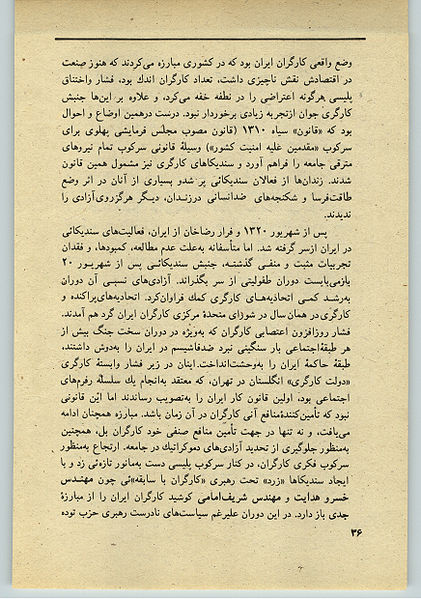 وضع واقعی کارگران ایران بود که در کشوری مبارزه می‌کردند که هنوز صنعت
در اقتصادش نقش ناچیزی داشت، تعداد کارگران اندك بود، فشار واختناق
پلیسی هرگونه اعتراضی را در نطفه خفه می‌کرد، و علاوه بر این‌ها جنبش
کارگری جوان ازتجربه زیادی برخوردار نبود. درست درهمین اوضاع و احوال
بود که «قانون» سیاه ۱۳۱۰ (قانون مصوب مجلس فرمایشی پهلوی برای
سرکوب «مقدمین علیه امنیت کشور») وسیلهٔ قانونی سرکوب تمام نیروهای
مترقی جامعه را فراهم آورد و سندیکاهای کارگری نیز مشمول همین قانون
شدند. زندان‌ها از فعالان سندیکائی پر شدو بسیاری از آنان در اثر وضع
طاقت‌فرسا و شکنجه‌های ضدانسانی درزندان، دیگر هرگزروی‌آزادی را
ندیدند.
پس از شهریور ۱۳۲۰ و فرار رضاخان از ایران، فعالیت‌های سندیکائی
در ایران ازسر گرفته شد. اما متأسفانه به‌علت عدم مطالعه، کمبودها، و فقدان
تجربیات مثبت و منفی گذشته، جنبش سندیکائی پس از شهریور ۲۰
بازمی‌بایست دوران طفولیتی از سر بگذراند. آزادی‌های نسبی آن دوران
به‌رشد کمی اتحادیه‌های کارگری کمك فراوان‌کرد. اتحادیه‌های‌پراکنده و
کارگری‌در همان سال در شورای متحدهٔ مرکزی کارگران ایران گرد هم آمدند.
فشار روزافزون اعتصابی کارگران که به‌ویژه در دوران سخت جنگ بیش از
هر طبقهٔ‌اجتماعی بار سنگینی نبرد ضدفاشیسم در ایران را به‌دوش داشتند،
طبقهٔ حاکمهٔ ایران را به‌وحشت‌انداخت.اینان در زیر فشار وابستهٔ کارگری
«دولت کارگری» انگلستان در تهران، که معتقد به‌انجام یك سلسلهٔ رفرم‌های
اجتماعی بود، اولین قانون کار ایران را به‌تصویب رساندند اما این قانونی
نبود که تأمین‌کنندهٔ‌منافع آنی کارگران در آن زمان باشد. مبارزه همچنان ادامه
می‌یافت، و نه تنها در جهت تأمین منافع صنفی خود کارگران بل، همچنین
به‌منظور جلوگیری از تحدید آزادی‌های دموکراتیك در جامعه. ارتجاع به‌منظور
سرکوب فکری کارگران، در کنار سرکوب پلیسی دست به‌مانور تازه‌ئی زد و با
ایجاد سندیکاها «زرد» تحت رهبری «کارگران با سابقه»ئی چون مهندس
خسرو هدایت و مهندس شریف‌امامی کوشید کارگران ایران را از مبارزهٔ
جدی باز دارد. در این دوران علیرغم سیاست‌های نادرست رهبری حزب توده
۳۶